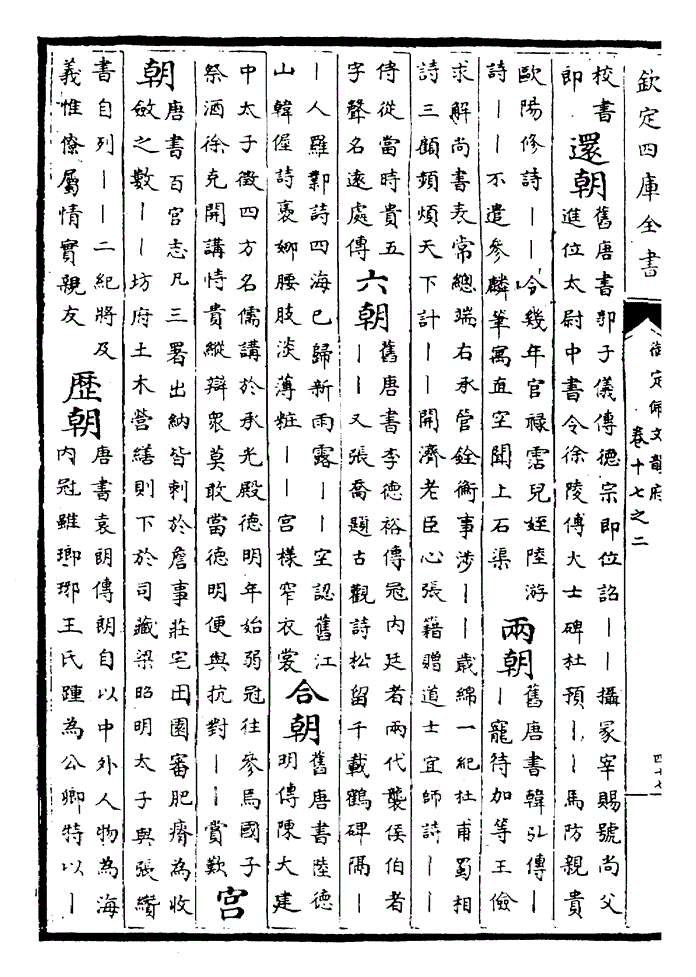 欽定四庫全書
御定佩文韻府
卷十七之二
四十七
校書
郎
還朝
舊唐書郭子儀傳德宗即位詔丨丨攝冢宰賜號尚父
進位太尉中書令徐陵傅大士碑杜預丨丨馬防親貴
歐陽修詩丨丨今幾年官祿霑兒姪陸游
詩丨丨不遣參麟筆寓直空聞上石渠
兩朝
舊唐書韓弘傳丨
丨寵待加等王儉
求解尚書表常總端右承管銓衡事涉丨丨歲綿一紀杜甫蜀相
詩三顧頻煩天下計丨丨開濟老臣心張籍贈道士宜師詩丨丨
侍從當時貴五
字聲名遠處傳
六朝
舊唐書李德裕傳冠内廷者兩代襲侯伯者
丨丨又張喬題古觀詩松留千載鶴碑隔丨
丨人羅鄴詩四海已歸新雨露丨丨空認舊江
山韓偓詩裛娜腰肢淡薄粧丨丨宮樣窄衣裳
合朝
舊唐書陸德
明傳陳大建
中太子徵四方名儒講於承光殿德明年始弱冠往參焉國子
祭酒徐克開講恃貴縱辯衆莫敢當德明便與抗對丨丨賞歎
宮
朝
唐書百官志凡三署出納皆刺於詹事莊宅田園審肥瘠為收
斂之數丨丨坊府土木營繕則下於司藏梁昭明太子與張纘
書自列丨丨二紀將及
義惟僚屬情實親友
歷朝
唐書袁朗傳朗自以中外人物為海
内冠雖瑯琊王氏踵為公卿特以丨